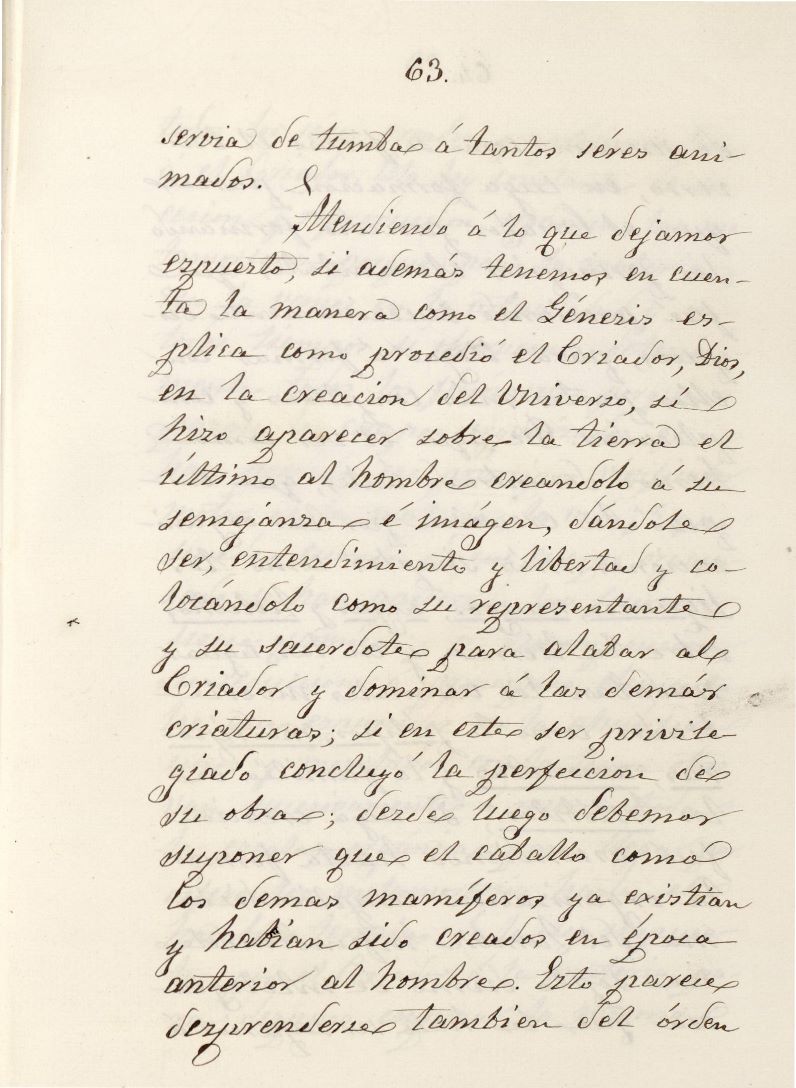 63.
servia de tumba á tantos séres ani-
mados.
Atendiendo á lo que dejamos
espuesto, si además tenemos en cuen-
ta la manera como el Génesis es-
plica como procedió el Criador, Dios,
en la creacion del Universo, si
hizo aparecer sobre la tierra el
último al hombre creandolo á su
semejanza é imágen, dándole
ser, entendimiento y libertad y co-
locándolo como su representante
y su sacerdote para alabar al
Criador y dominar á las demás
criaturas; si en este ser privile-
giado concluyó la perfeccion de
su obra; desde luego debemos
suponer que el caballo como
los demas mamíferos ya existian
y habian sido creados en época
anterior al hombre. Esto parece
desprenderse tambien del órden